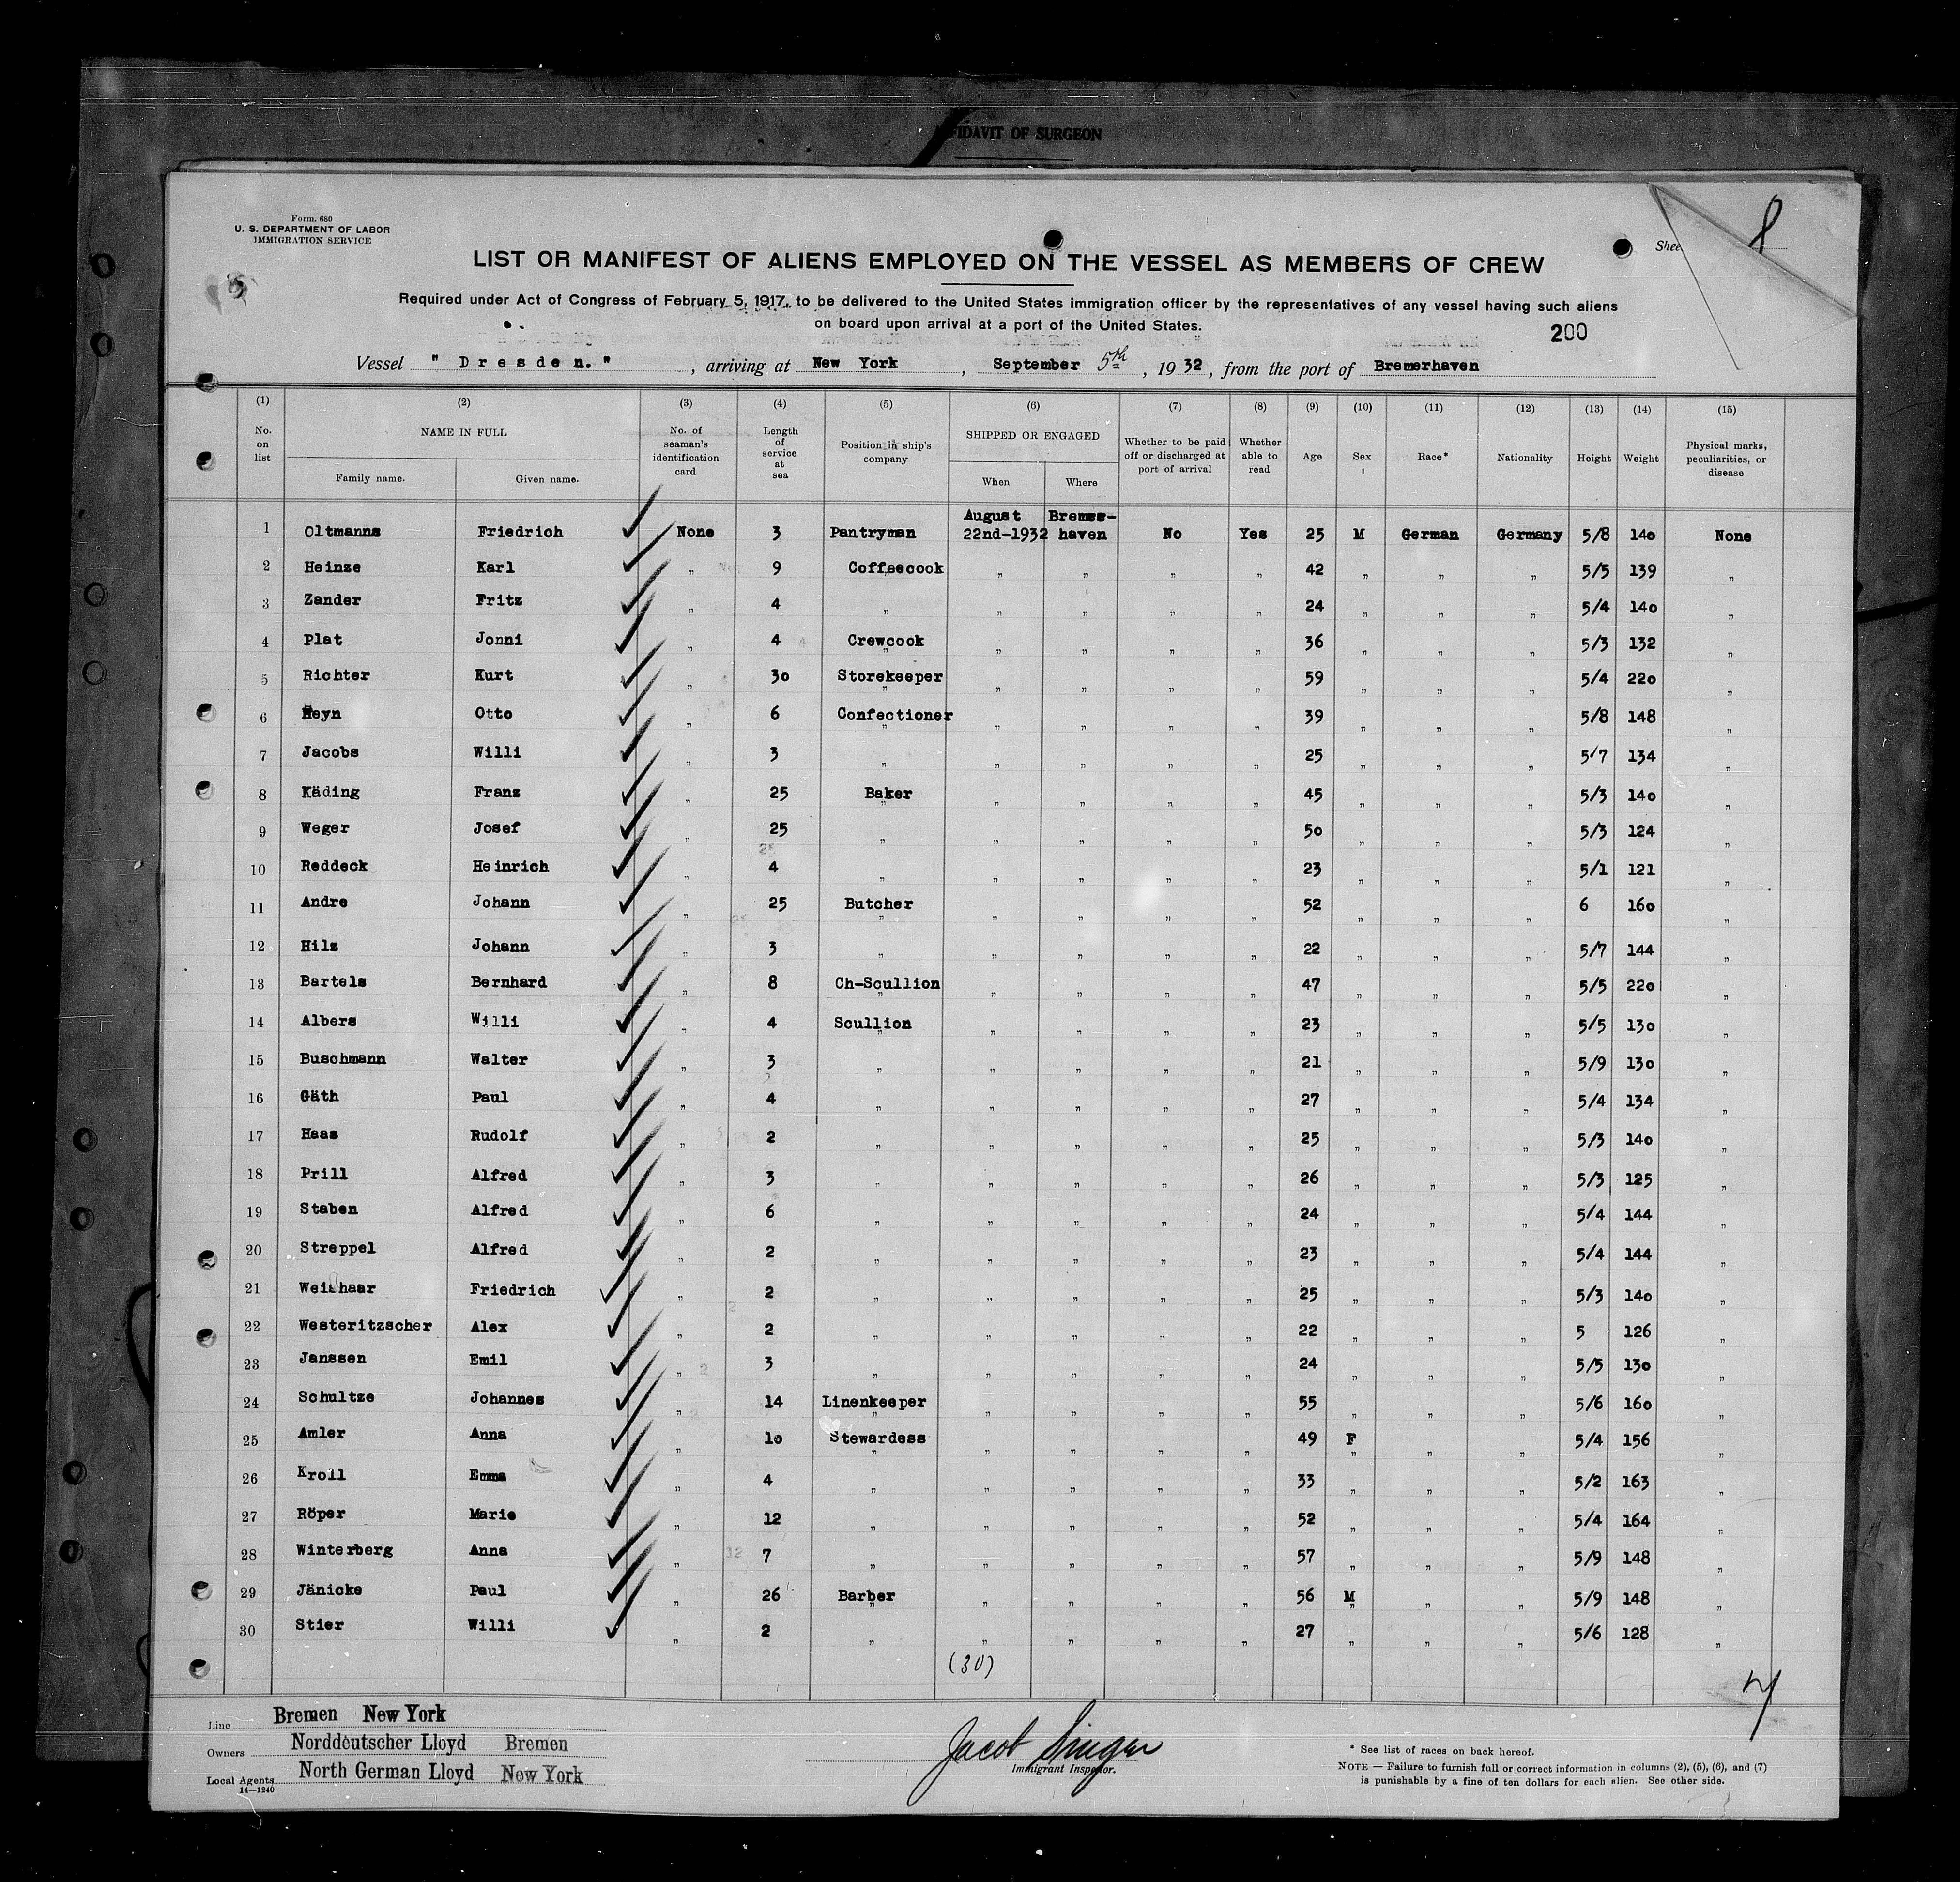 AFFIDAVIT OF SURGEON
Form. 680
U. S. DEPARTMENT OF LABOR
IMMIGRATION SERVICE
Shee
8
LIST OR MANIFEST OF ALIENS EMPLOYED ON THE VESSEL AS MEMBERS OF CREW
Required under Act of Congress of February 5, 1917, to be delivered to the United States immigration officer by the representatives of any vessel having such aliens
on board upon arrival at a port of the United States.
200
Vessel " Dresden. " , arriving at New York , September 5th , 1932 , from the port of Bremerhaven
(1) (2) (3) (4) (5) (6) (7) (8) (9) (10) (11) (12) (13) (14) (15)
No. on list NAME IN FULL Family name. Given name. No. of seaman's identification card Length of service at sea Position in ship's company SHIPPED OR ENGAGED When Where Whether to be paid off or discharged at port of arrival Whether able to read Age Sex Race* Nationality Height Weight Physical marks, peculiarities, or disease
1 Oltmanns Friedrich None 3 Pantryman August 22nd-1932 Bremer-haven No Yes 25 M German Germany 5/8 140 None
2 Heinze Karl " 9 Coffeecook " " " " 42 " " " 5/5 139 "
3 Zander Fritz " 4 " " " " " 24 " " " 5/4 140 "
4 Plat Jonni " 4 Crewcook " " " " 36 " " " 5/3 132 "
5 Richter Kurt " 30 Storekeeper " " " " 59 " " " 5/4 220 "
6 Heyn Otto " 6 Confectioner " " " " 39 " " " 5/8 148 "
7 Jacobs Willi " 3 " " " " " 25 " " " 5/7 134 "
8 Käding Franz " 25 Baker " " " " 45 " " " 5/3 140 "
9 Weger Josef " 25 " " " " " 50 " " " 5/3 124 "
10 Reddeck Heinrich " 4 " " " " " 23 " " " 5/1 121 "
11 Andre Johann " 25 Butcher " " " " 52 " " " 6 160 "
12 Hilz Johann " 3 " " " " " 22 " " " 5/7 144 "
13 Bartels Bernhard " 8 Ch-Scullion " " " " 47 " " " 5/5 220 "
14 Albers Willi " 4 Scullion " " " " 23 " " " 5/5 130 "
15 Buschmann Walter " 3 " " " " " 21 " " " 5/9 130 "
16 Gäth Paul " 4 " " " " " 27 " " " 5/4 134 "
17 Haas Rudolf " 2 " " " " " 25 " " " 5/3 140 "
18 Prill Alfred " 3 " " " " " 26 " " " 5/3 125 "
19 Staben Alfred " 6 " " " " " 24 " " " 5/4 144 "
20 Streppel Alfred " 2 " " " " " 23 " " " 5/4 144 "
21 Weishaar Friedrich " 2 " " " " " 25 " " " 5/3 140 "
22 Westeritzscher Alex " 2 " " " " " 22 " " " 5 126 "
23 Janssen Emil " 3 " " " " " 24 " " " 5/5 130 "
24 Schultze Johannes " 14 Linenkeeper " " " " 55 " " " 5/6 160 "
25 Amler Anna " 10 Stewardess " " " " 49 F " " 5/4 156 "
26 Kroll Emma " 4 " " " " " 33 " " " 5/2 163 "
27 Röper Marie " 12 " " " " " 52 " " " 5/4 164 "
28 Winterberg Anna " 7 " " " " " 57 " " " 5/9 148 "
29 Jänicke Paul " 26 Barber " " " " 56 M " " 5/9 148 "
30 Stier Willi " 2 " " " " " 27 " " " 5/6 128 "
(30)
Line Bremen New York
Owners Norddeutscher Lloyd Bremen
Local Agents North German Lloyd New York
14—1240
Jacob Singer
Immigrant Inspector.
* See list of races on back hereof.
NOTE — Failure to furnish full or correct information in columns (2), (5), (6), and (7)
is punishable by a fine of ten dollars for each alien. See other side.